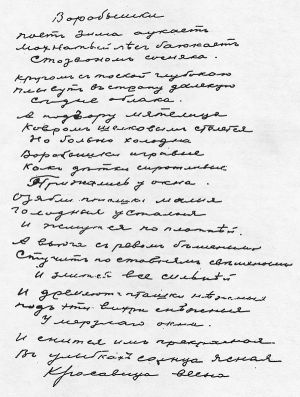 Воробышки
Поетъ зима аукаетъ
Мохнатый лѣсъ баюкаетъ
Стозвономъ сосняка.
Кругомъ съ тоской глубокою
Плывутъ въ страну далекую
Сѣдые облака.
А по двору мятелица
Ковромъ шелковымъ стелется
Но больно холодна
Воробышки игривые
Какъ дѣтки сиротливые
Прижались у окна.
Озябли пташки малыя
Голодныя усталыя
И жмутся поплотнѣй.
А вьюга съ ревомъ бѣшенымъ
Стучитъ по ставнямъ свѣшеннымъ
И злится все сильнѣй
И дремлютъ пташки нѣжныя
Подъ эти вихри снѣжные
У мерзлаго окна.
И снится имъ прекрасная
Въ улыбкахъ солнца ясная
Красавица весна